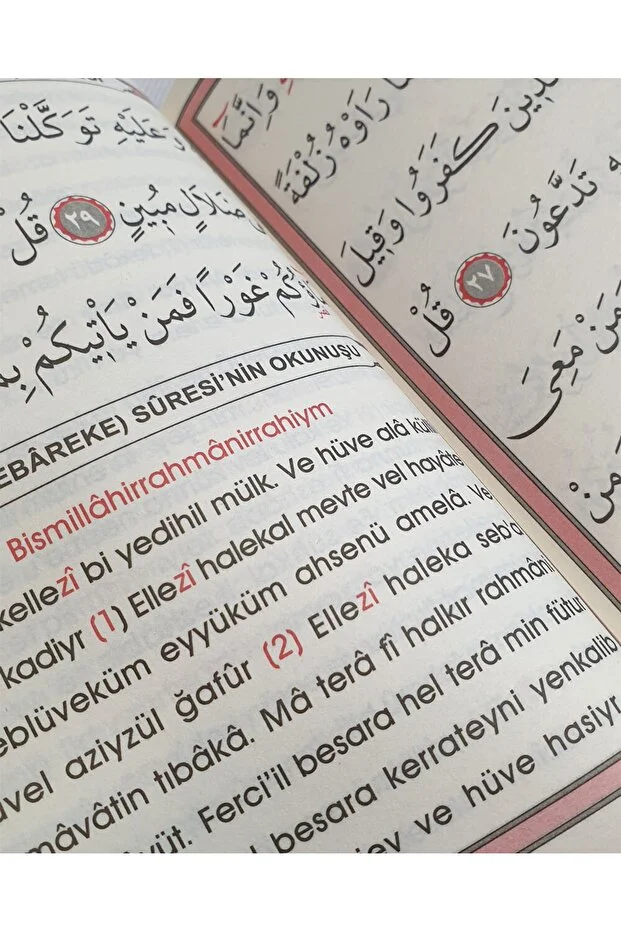 وَاِنَّمَا
رَاَوْهُ زُلْفَةً
كَفَرُوا وَقِيلَ
تَدَّعُونَ ٢٧ قُلْ
وَمَنْ مَعِىَ
وَعَلَيْهِ تَوَكَّلْنَا
ضَلَالٍ مُبِينٍ ٢٩ قُلْ
غَوْرًا فَمَنْ يَاْتِيكُمْ
EBÂREKE) SÛRESİ'NİN OKUNUŞU
Bismillâhirrahmânirrahiym
kellezî bi yedihil mülk. Ve hüve alâ külli
kadiyr (1) Ellezî halekal mevte vel hayâte
eblüveküm eyyüküm ahsenü amelâ. Ve
üvel aziyzül ğafûr (2) Ellezî haleka seb'a
mâvâtin tıbâkâ. Mâ terâ fî halkır rahmâni
vüt. Ferci'il besara hel terâ min fütur
besara kerrateyni yenkalib
ve hüve hasiyr